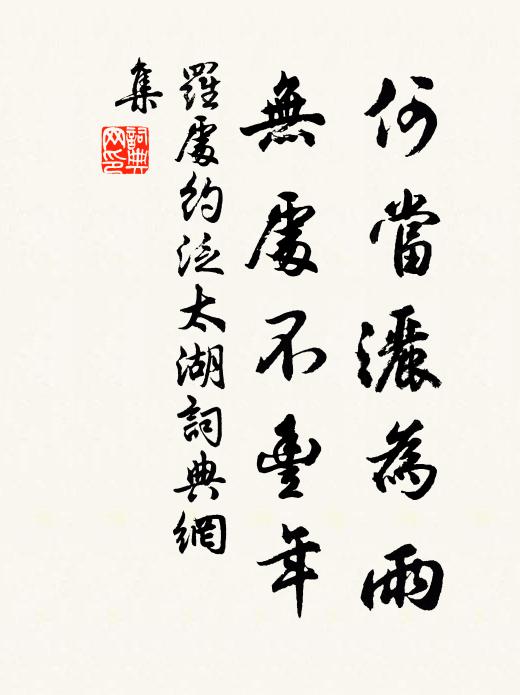 何當灑為雨
無處不豐年
羅處約泛太湖詞典網
集
詞典網印